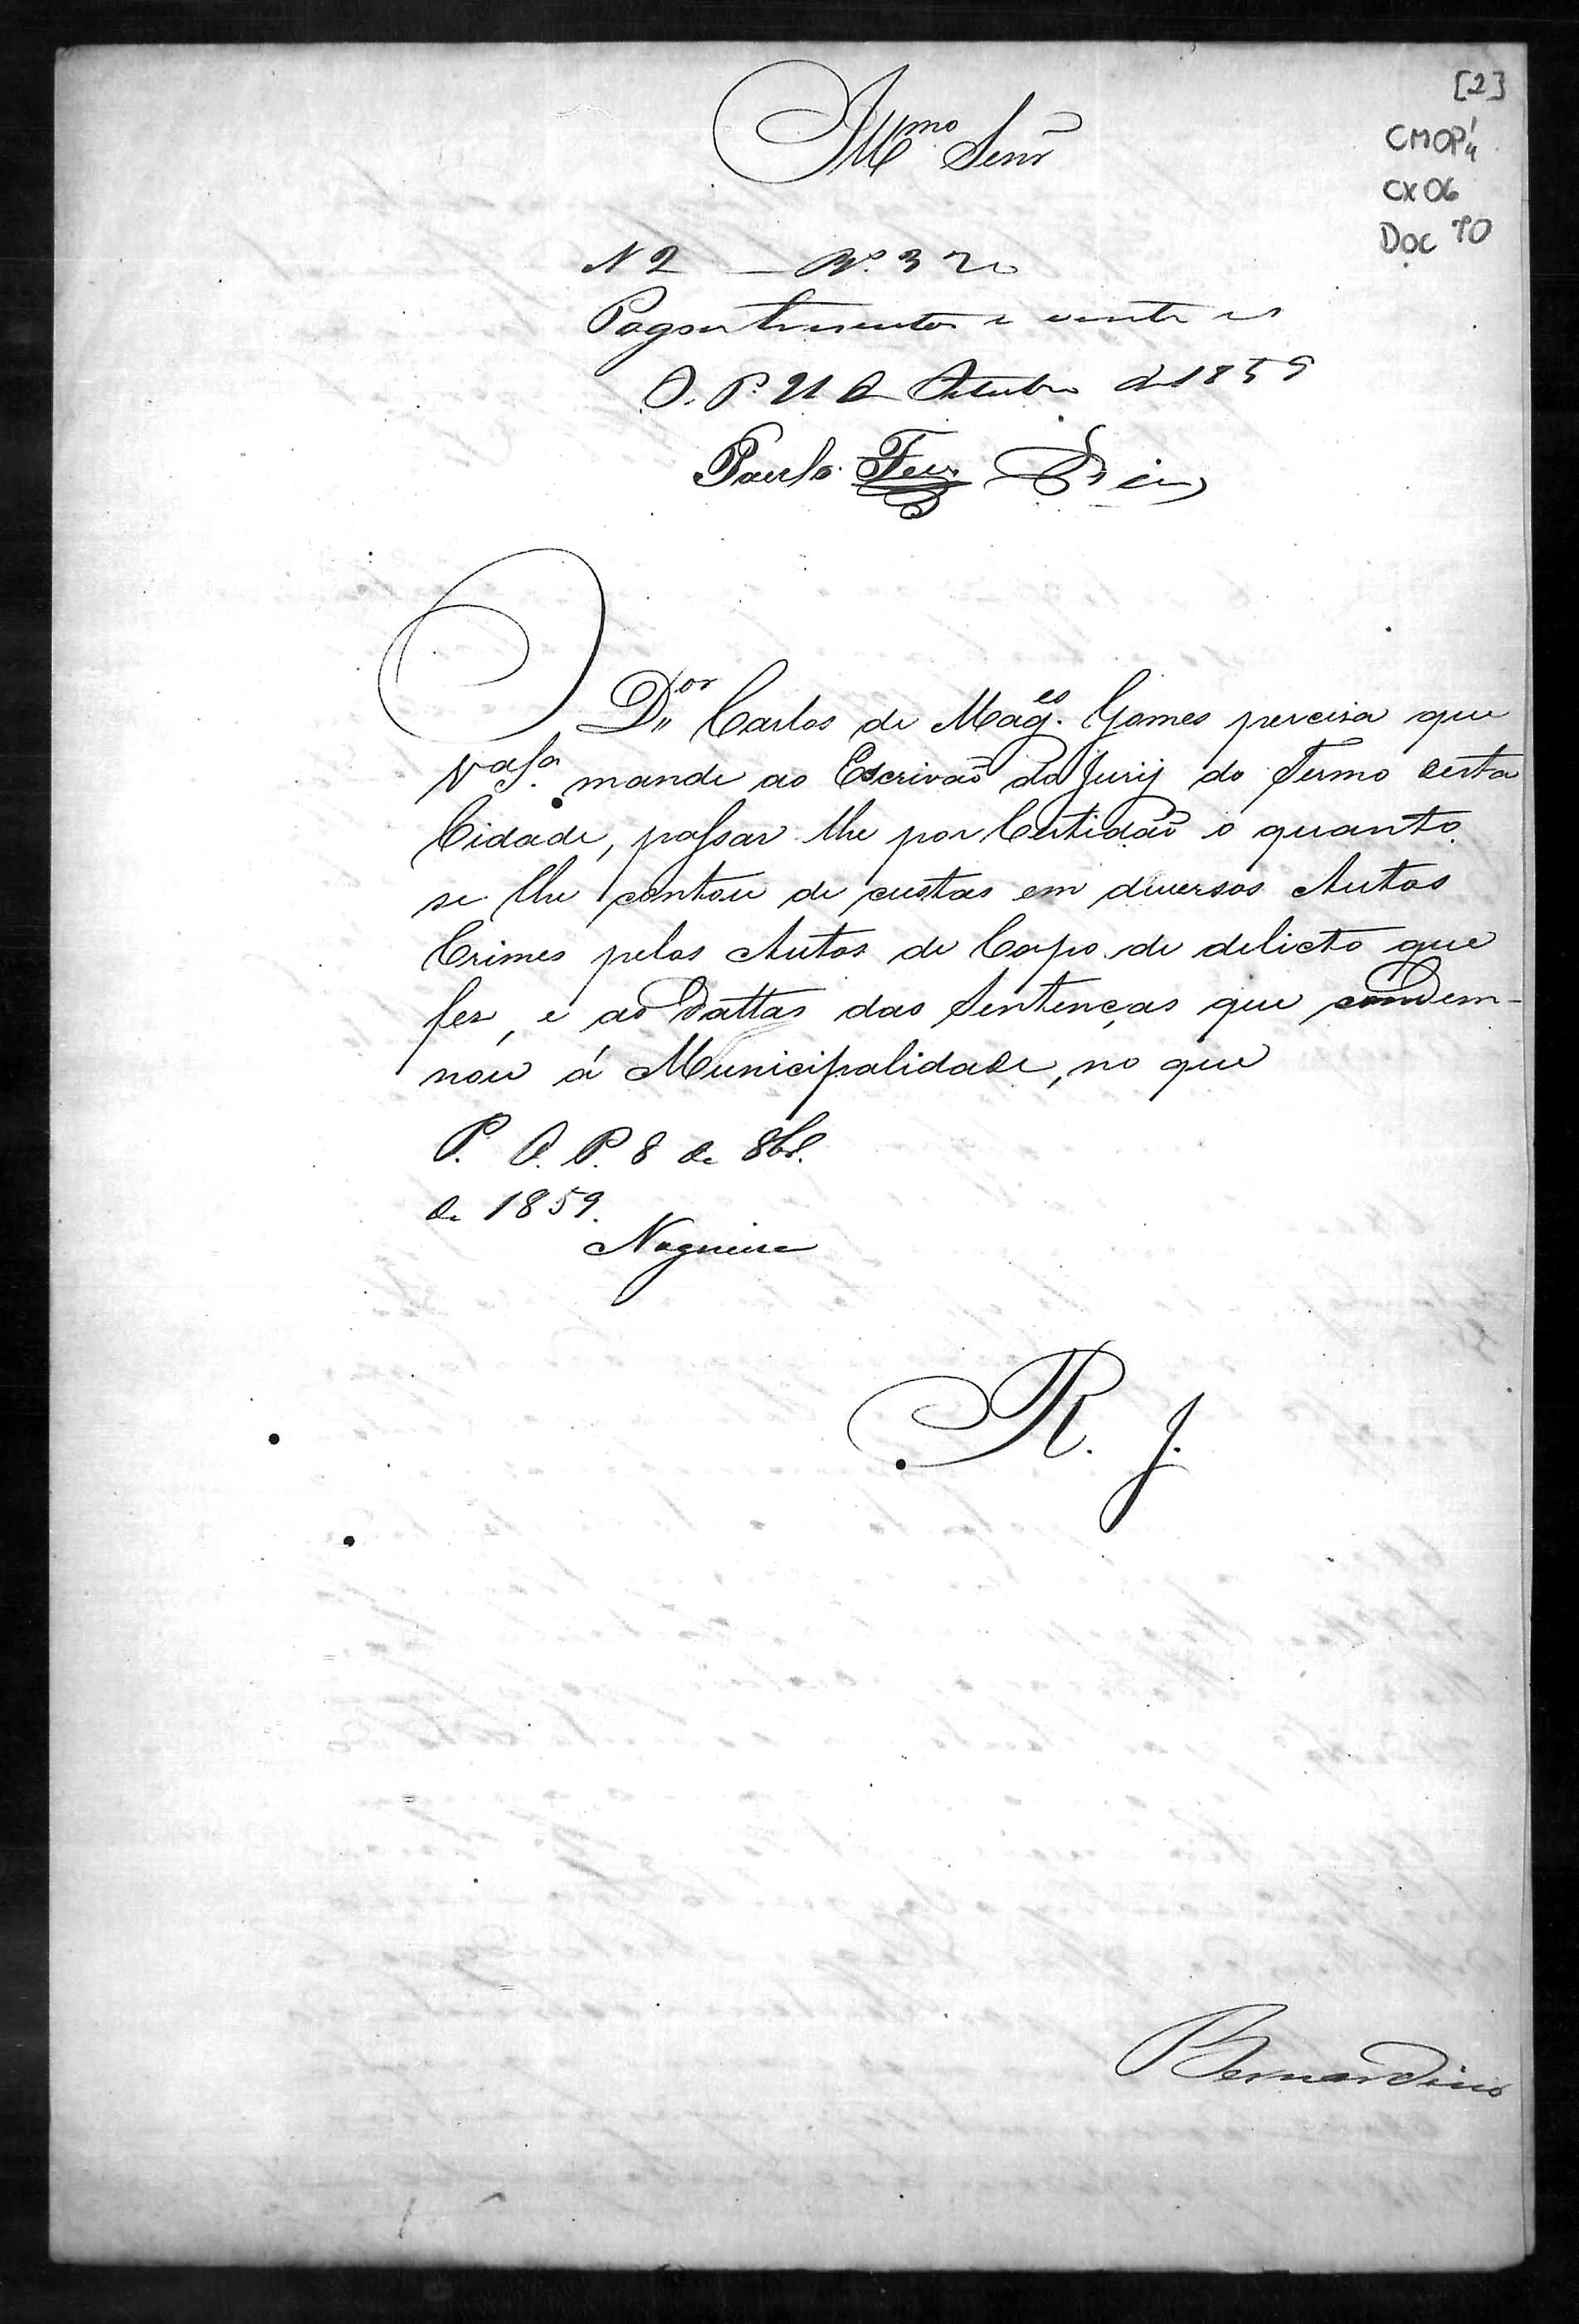 [2]
CMOP
CX 06
DOC 70
Illmo Senr
N 2 — Nº. 320
Pagou trezentos e vinte rs
O. P. 21 de Outubro de 1859
Paulo Fer. Dias
O Dor Carlos de Mages. Gomes percisa que
Va Sa. mande ao Escrivão do Jury do Termo desta
Cidade, passar lhe por Certidão o quanto
se lhe contou de custas em diversos Autos
Crimes pelos Autos de Corpo de delicto que
fes, e as dattas das Sentenças que condem-
nou á Municipalidade, no que
P. O. P. 8 de 8br.
de 1859.
Nogueira
R. J.
Bernardino